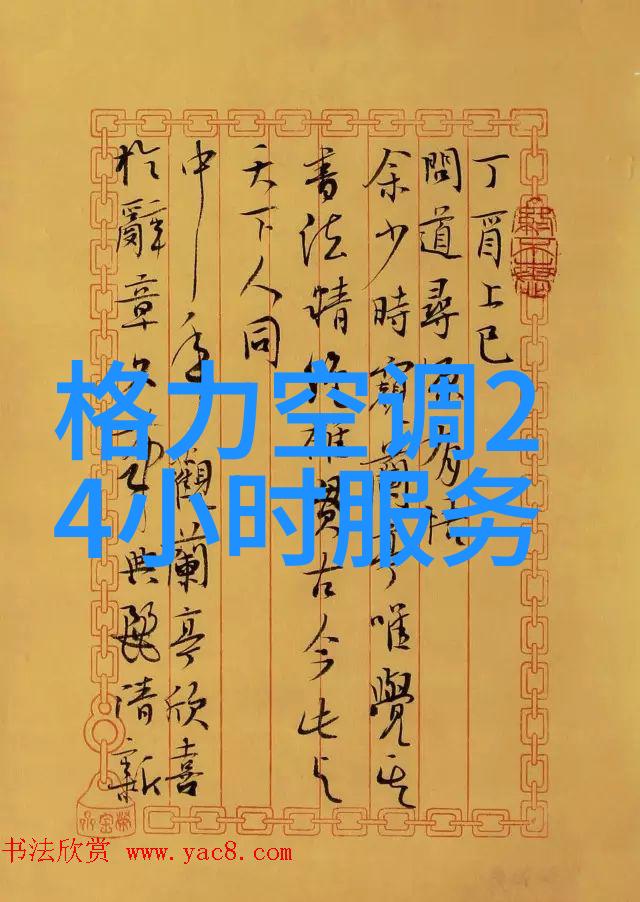 丁酉上巳
問道尋
余少時窺蘭亭唯覺其
書法精 貫古今
天下人同
中年觀蘭亭欣喜
於辭章 典麗清新
格力空调2
4小时服务
书法欣赏 www.yac8.com